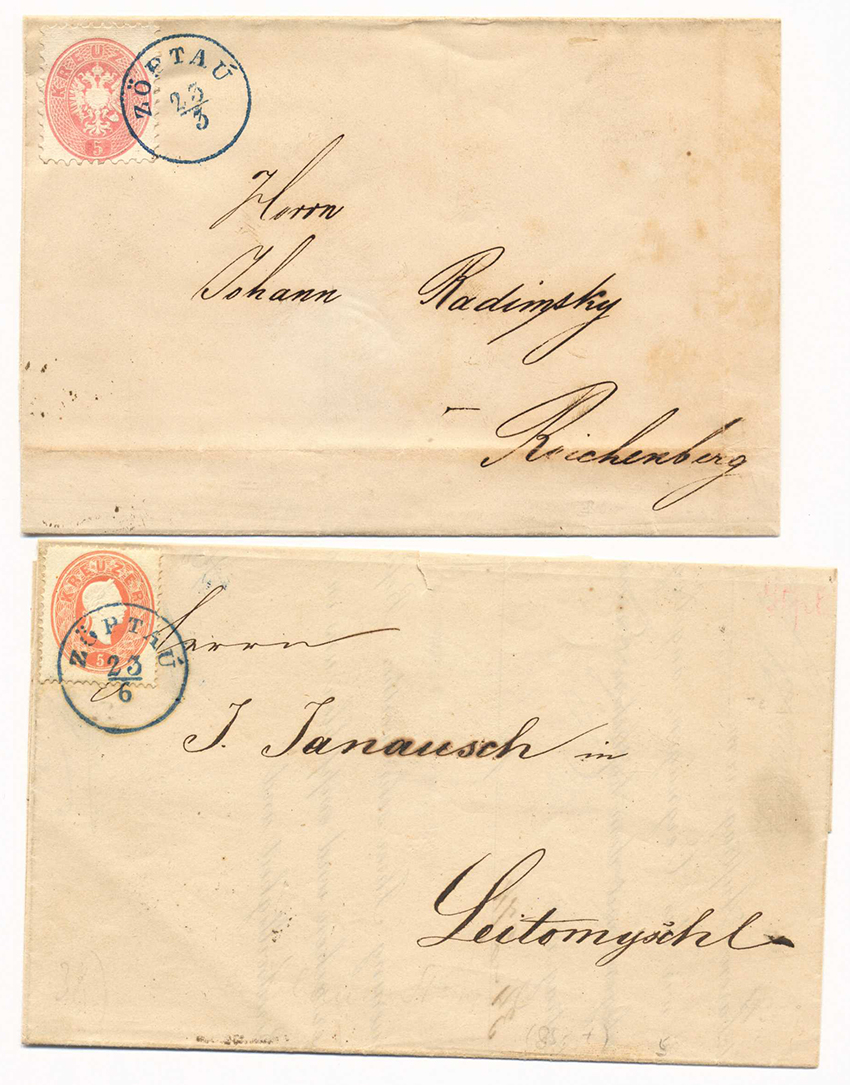 KREUZ
5
ZÖPTAÚ
23
3
Herrn
Johann Radimsky
Reichenberg
KREUZER
5
ZÖPTAÚ
23
6
Herrn
J. Janausch in
Leitomyschl